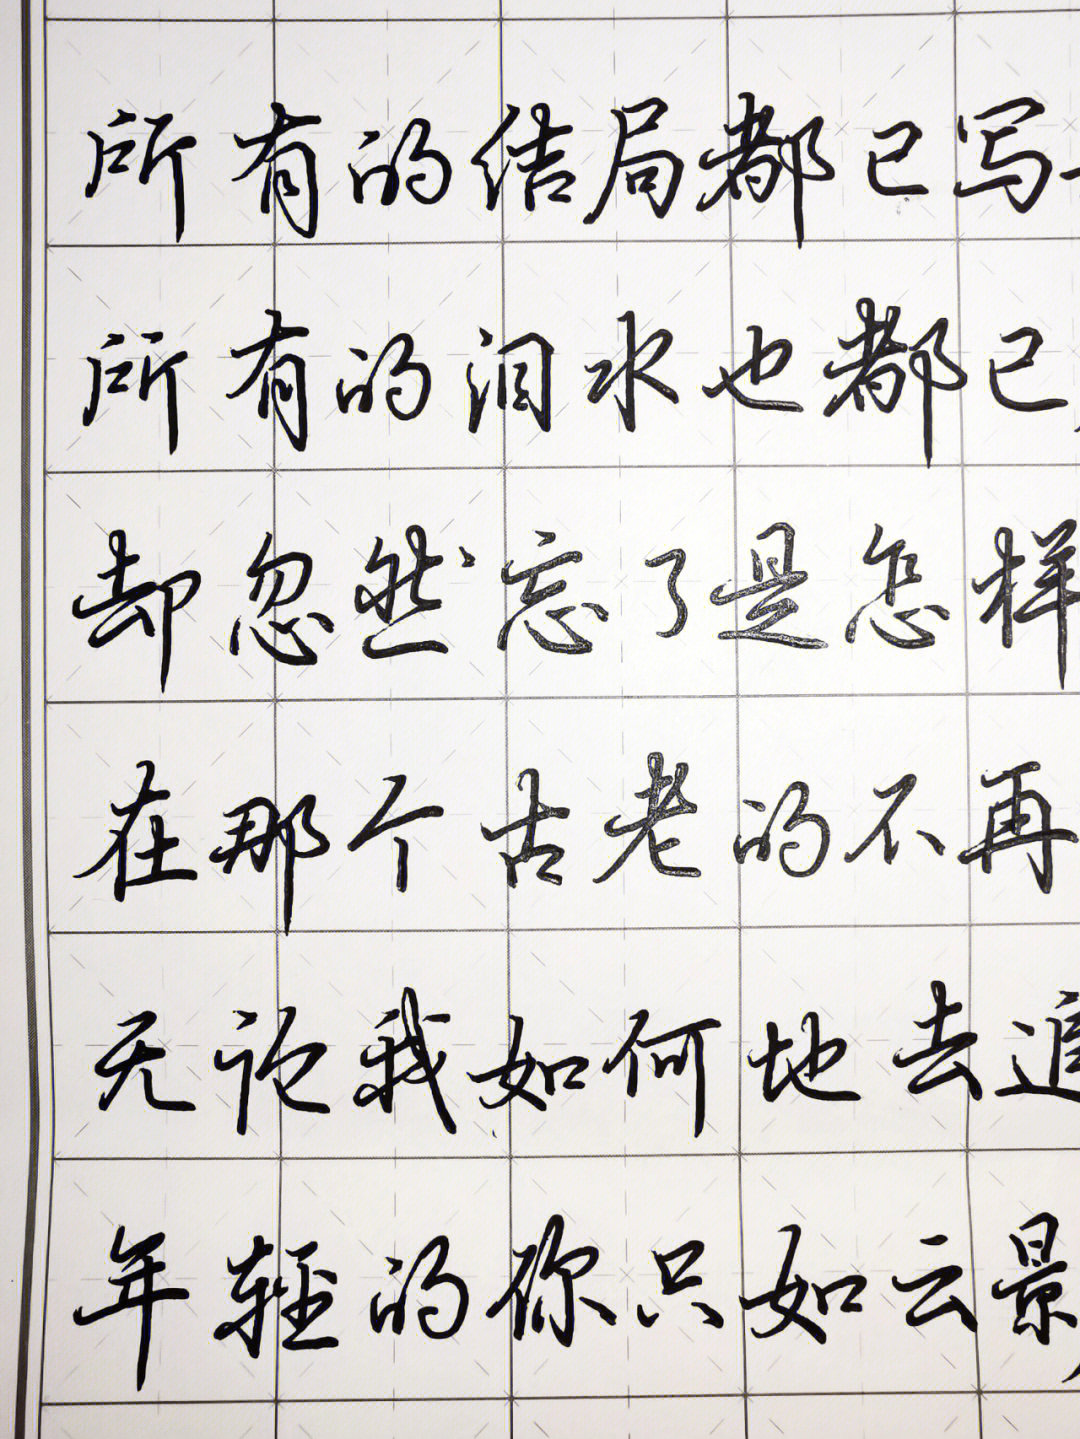 所有的结局都已写
所有的泪水也都已
却忽然忘了是怎样
在那个古老的不再
无论我如何地去追
年轻的你只如云影